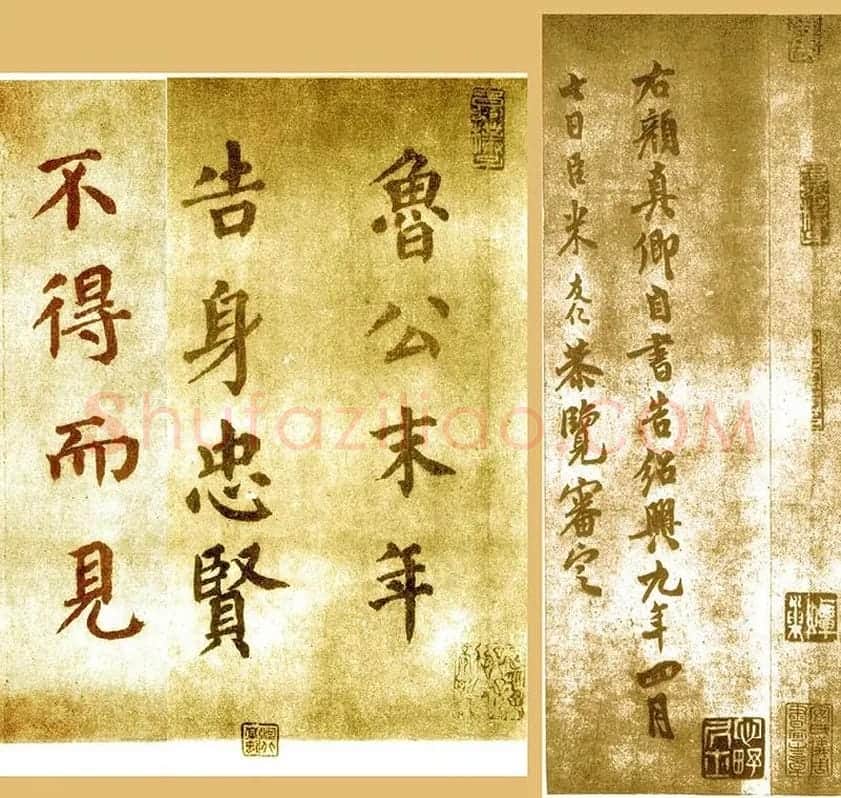 魯公末年
告身忠賢
不得而見
右顏真卿自書告紹興九年四月
七日臣米友仁恭覽審定
Shufaziliao.COM